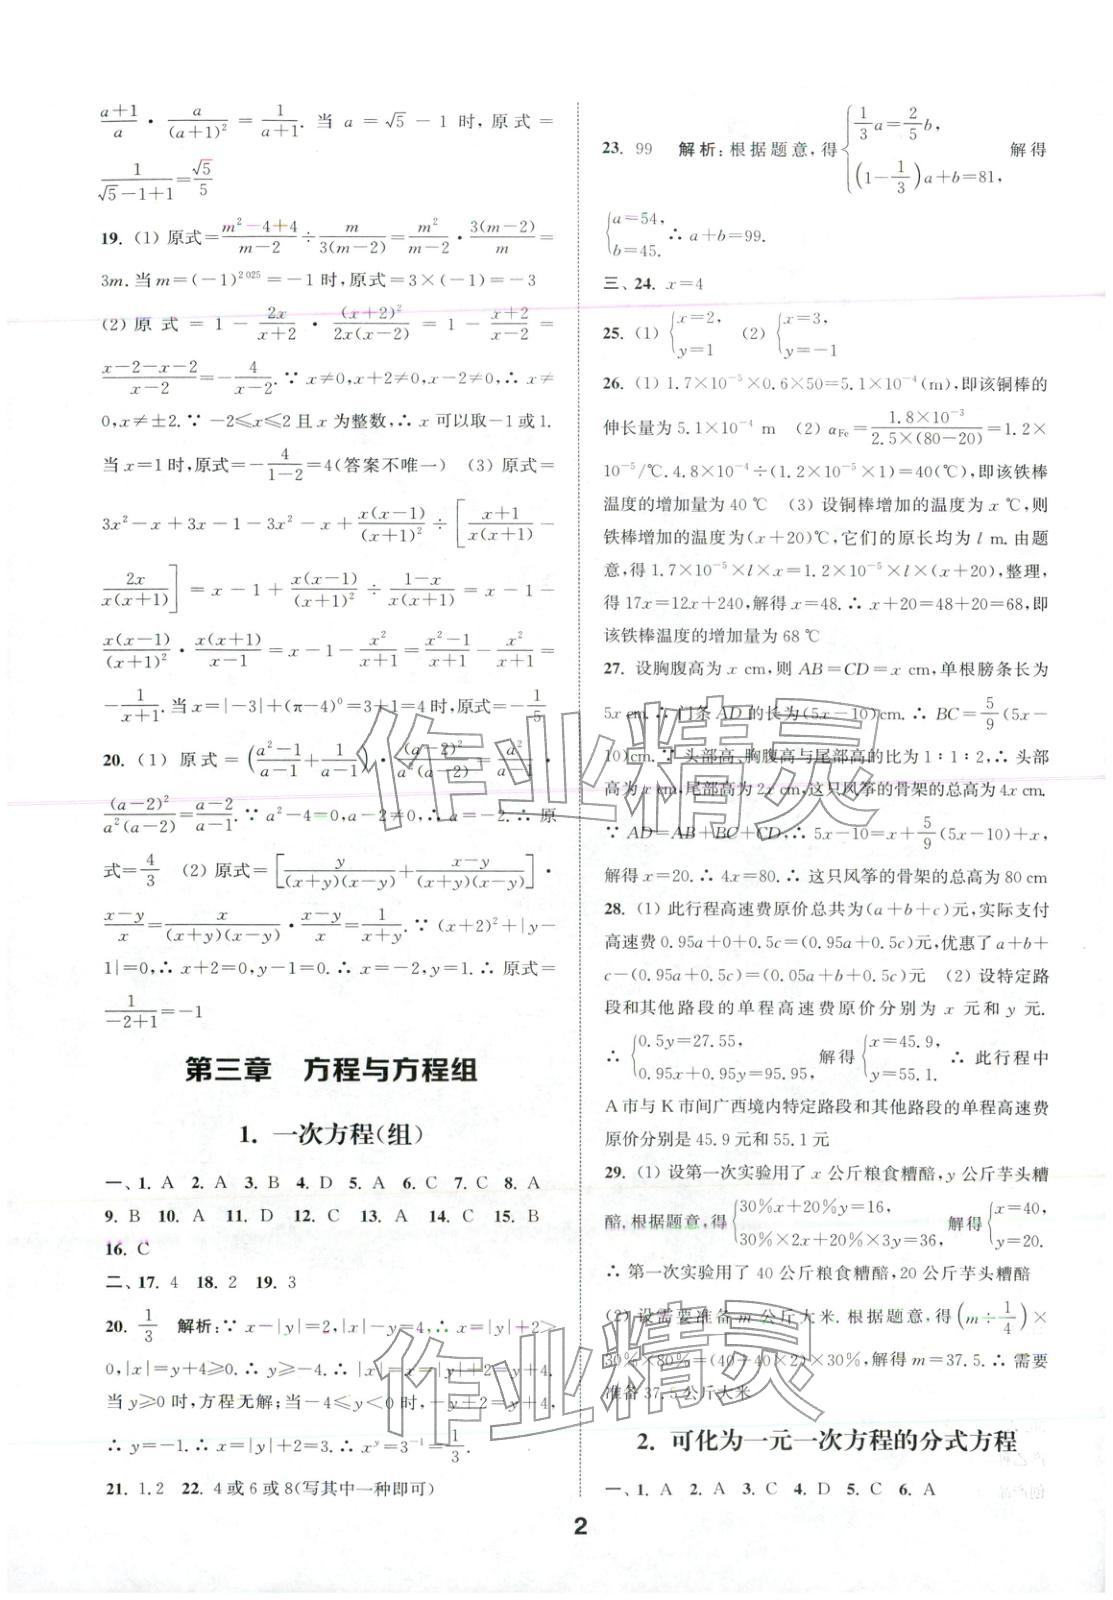 \frac{a+1}{a}·\frac{a}{(a+1)^2}=\frac{1}{a+1}. 当 a=√5-1 时,原式=
\frac{1}{√5-1+1}=\frac{√5}{5}
19. (1) 原式=\frac{m^2-4+4}{m-2}÷\frac{m}{3(m-2)}=\frac{m^2}{m-2}·\frac{3(m-2)}{m}=
3m. 当 m=(-1)^{2025}=-1 时,原式=3×(-1)=-3
(2) 原式=1-\frac{2x}{x+2}·\frac{(x+2)^2}{2x(x-2)}=1-\frac{x+2}{x-2}=
\frac{x-2-x-2}{x-2}=-\frac{4}{x-2}. ∵ x≠0,x+2≠0,x-2≠0,∴ x≠
0,x≠±2. ∵ -2≤x≤2 且 x 为整数,∴ x 可以取-1 或 1.
当 x=1 时,原式=-\frac{4}{1-2}=4(答案不唯一) (3) 原式=
3x^2-x+3x-1-3x^2-x+\frac{x(x-1)}{(x+1)^2}÷[\frac{x+1}{x(x+1)}-
\frac{2x}{x(x+1)}]=x-1+\frac{x(x-1)}{(x+1)^2}÷\frac{1-x}{x(x+1)}=x-1-
\frac{x(x-1)}{(x+1)^2}·\frac{x(x+1)}{x-1}=x-1-\frac{x^2}{x+1}=\frac{x^2-1}{x+1}-\frac{x^2}{x+1}=
-\frac{1}{x+1}. 当 x=|-3|+(π-4)^0=3+1=4 时,原式=-\frac{1}{5}
20. (1) 原式=(\frac{a^2-1}{a-1}+\frac{1}{a-1})·\frac{(a-2)^2}{a^2(a-2)}=\frac{a^2}{a-1}·
\frac{(a-2)^2}{a^2(a-2)}=\frac{a-2}{a-1}. ∵ a^2-4=0,a-2≠0,∴ a=-2. ∴ 原
式=\frac{4}{3} (2) 原式=[\frac{y}{(x+y)(x-y)}+\frac{x-y}{(x+y)(x-y)}]·
\frac{x-y}{x}=\frac{x}{(x+y)(x-y)}·\frac{x-y}{x}=\frac{1}{x+y}. ∵ (x+2)^2+|y-
1|=0,∴ x+2=0,y-1=0. ∴ x=-2,y=1. ∴ 原式=
\frac{1}{-2+1}=-1
第三章 方程与方程组
1. 一次方程(组)
一、1. A 2. A 3. B 4. D 5. A 6. C 7. C 8. A
9. B 10. A 11. D 12. C 13. A 14. C 15. B
16. C
二、17. 4 18. 2 19. 3
20. \frac{1}{3} 解析:∵ x-|y|=2,|x|-y=4,∴ x=|y|+2>
0,|x|=y+4≥0. ∴ y≥-4. ∴ |x|=x=|y|+2=y+4.
当 y≥0 时,方程无解;当-4≤y<0 时,-y+2=y+4,
∴ y=-1. ∴ x=|y|+2=3. ∴ x^y=3^{-1}=\frac{1}{3}.
21. 1.2 22. 4 或 6 或 8(写其中一种即可)
23. 99 解析:根据题意,得{\frac{1}{3}a=\frac{2}{5}b, (1-\frac{1}{3})a+b=81, 解得
{a=54, b=45. ∴ a+b=99.
三、24. x=4
25. (1) {x=2, y=1 (2) {x=3, y=-1
26. (1) 1.7×10^{-5}×0.6×50=5.1×10^{-4}(m),即该铜棒的
伸长量为 5.1×10^{-4} m (2) α_{Fe}=\frac{1.8×10^{-3}}{2.5×(80-20)}=1.2×
10^{-5}/℃. 4.8×10^{-4}÷(1.2×10^{-5}×1)=40(℃),即该铁棒
温度的增加量为 40 ℃ (3) 设铜棒增加的温度为 x ℃,则
铁棒增加的温度为(x+20)℃,它们的原长均为 l m. 由题
意,得 1.7×10^{-5}×l×x=1.2×10^{-5}×l×(x+20),整理,
得 17x=12x+240,解得 x=48. ∴ x+20=48+20=68,即
该铁棒温度的增加量为 68 ℃
27. 设胸腹高为 x cm,则 AB=CD=x cm,单根膀条长为
5x cm. ∴ 门条 AD 的长为(5x-10)cm. ∴ BC=\frac{5}{9}(5x-
10)cm. ∵ 头部高、胸腹高与尾部高的比为 1∶1∶2,∴ 头部
高为 x cm,尾部高为 2x cm,这只风筝的骨架的总高为 4x cm.
∵ AD=AB+BC+CD,∴ 5x-10=x+\frac{5}{9}(5x-10)+x,
解得 x=20. ∴ 4x=80. ∴ 这只风筝的骨架的总高为 80 cm
28. (1) 此行程高速费原价总共为(a+b+c)元,实际支付
高速费 0.95a+0+0.5c=(0.95a+0.5c)元,优惠了 a+b+
c-(0.95a+0.5c)=(0.05a+b+0.5c)元 (2) 设特定路
段和其他路段的单程高速费原价分别为 x 元和 y 元.
∴ {0.5y=27.55, 0.95x+0.95y=95.95, 解得{x=45.9, y=55.1. ∴ 此行程中
A 市与 K 市间广西境内特定路段和其他路段的单程高速费
原价分别是 45.9 元和 55.1 元
29. (1) 设第一次实验用了 x 公斤粮食糟醅,y 公斤芋头糟
醅. 根据题意,得{30%x+20%y=16, 30%×2x+20%×3y=36, 解得{x=40, y=20.
∴ 第一次实验用了 40 公斤粮食糟醅,20 公斤芋头糟醅
(2) 设需要准备 m 公斤大米. 根据题意,得(m÷\frac{1}{4})×
30%×80%=(40+40×2)×30%,解得 m=37.5. ∴ 需要
准备 37.5 公斤大米
2. 可化为一元一次方程的分式方程
一、1. A 2. A 3. C 4. D 5. C 6. A
2
作业精灵
作业精灵